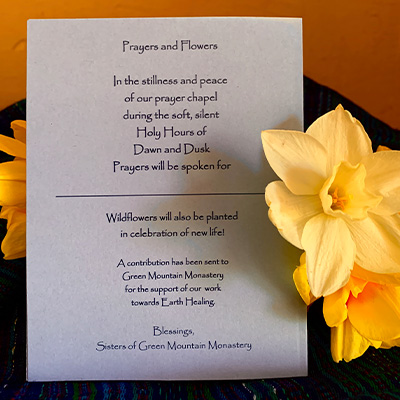 Prayers and Flowers
In the stillness and peace
of our prayer chapel
during the soft, silent
Holy Hours of
Dawn and Dusk
Prayers will be spoken for
Wildflowers will also be planted
in celebration of new life!
A contribution has been sent to
Green Mountain Monastery
for the support of our work
towards Earth Healing.
Blessings,
Sisters of Green Mountain Monastery